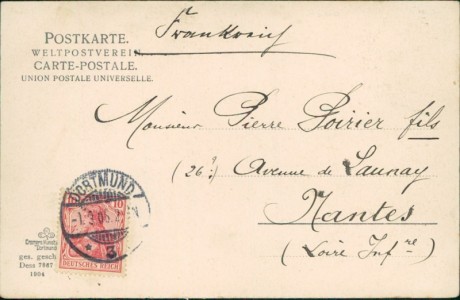 POSTKARTE.
WELTPOSTVEREIN.
CARTE-POSTALE.
UNION POSTALE UNIVERSELLE.
Frankreich
Monsieur Pierre Poirier fils
(26 Avenue de Launay
Nantes
(Loire Infre)
DORTMUND
10
3
DEUTSCHES REICH
Dortmund
ges. gesch
Dess 7887
1904